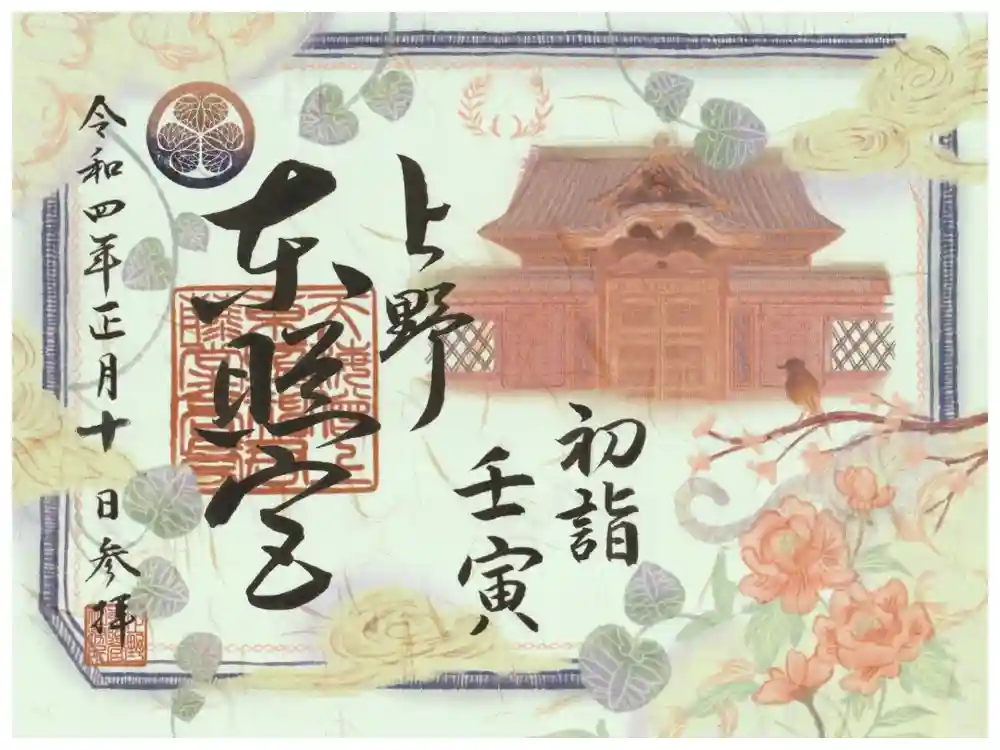 初詣
壬寅
上野
東照宮
令和四年正月十日参拝